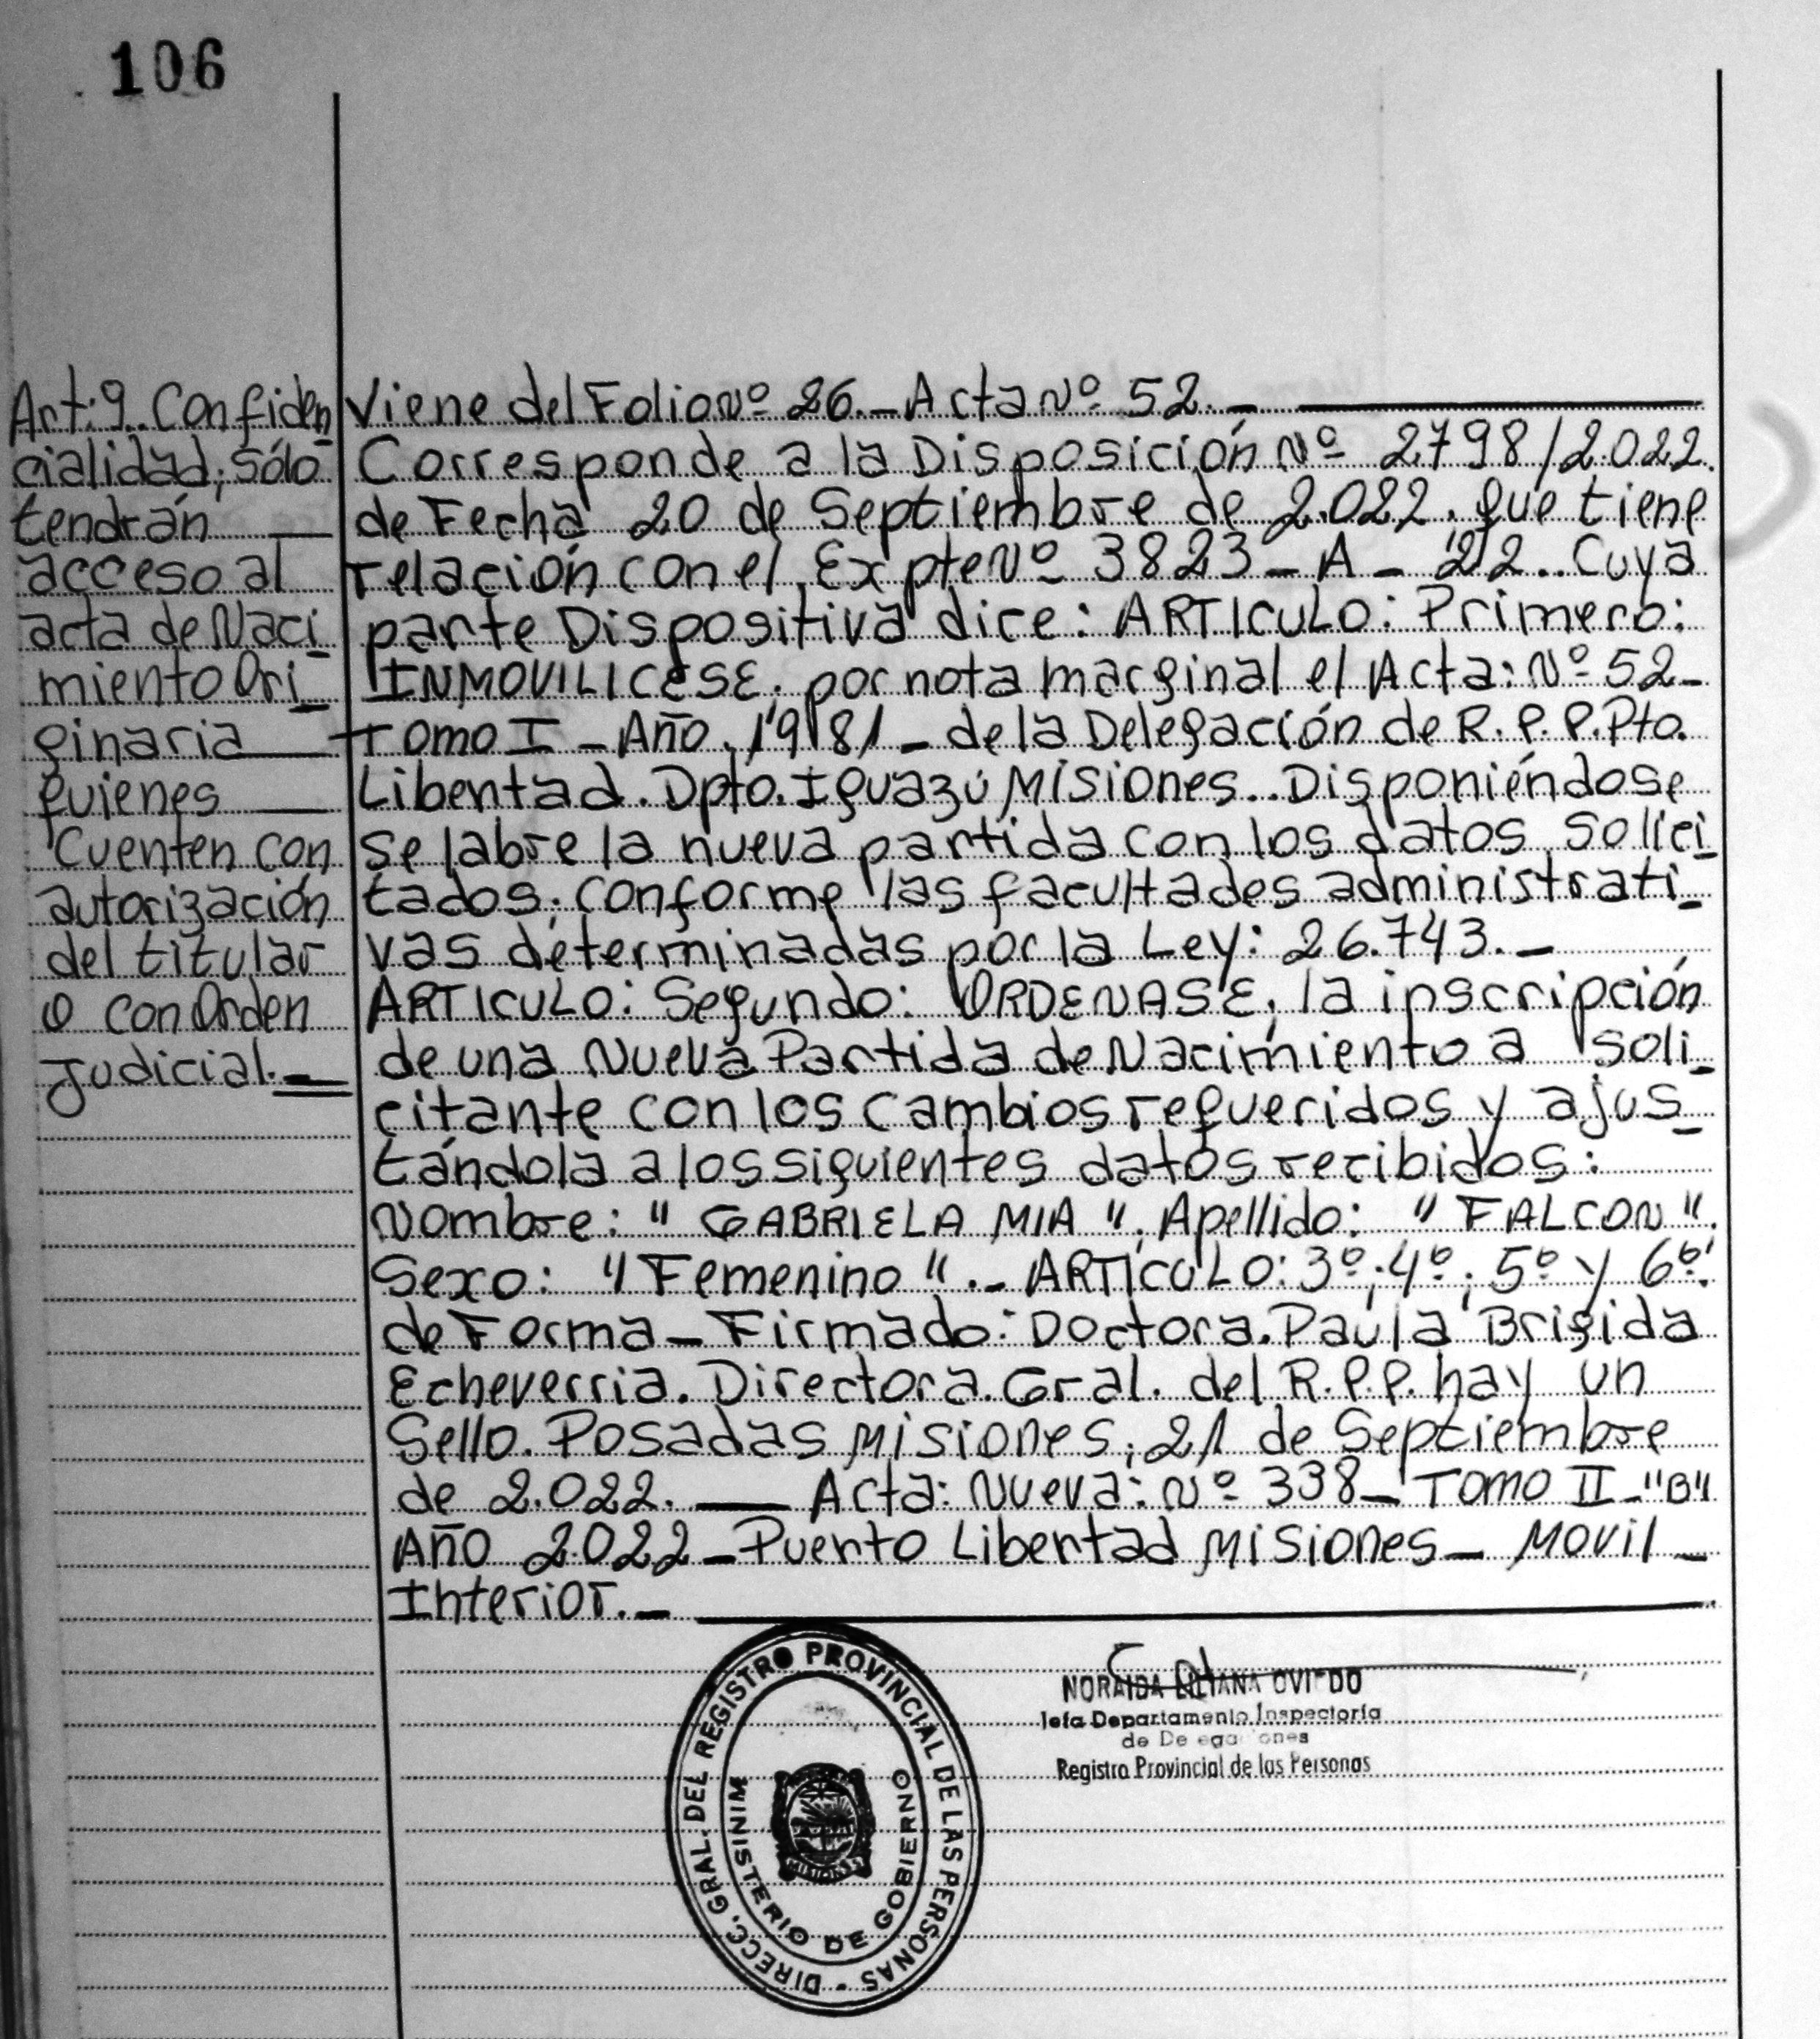 106
Art: 9.. Confiden
cialidad; sólo
tendrán
acceso al
acta de Naci
miento Ori
ginaria
quienes
Cuenten con
autorización
del titular
o con Orden
Judicial.
Viene del Folio Nº 26.- Acta Nº 52.-
Corresponde a la Disposición Nº 2798/2.022.
de Fecha 20 de Septiembre de 2.022. que tiene
relación con el Expte Nº 3823-A-22.. Cuya
parte Dispositiva dice: ARTICULO: Primero:
INMOVILICESE. por nota marginal el Acta: Nº 52-
Tomo I - Año 1981 - de la Delegación de R.P.P. Pto.
Libertad. Dpto. Iguazú Misiones.. Disponiéndose
se labre la nueva partida con los datos solici
tados; conforme las facultades administrati
vas determinadas por la Ley: 26.743.-
ARTICULO: Segundo: ORDENASE, la inscripción
de una Nueva Partida de Nacimiento a soli
citante con los cambios requeridos y ajus
tándola a los siguientes datos recibidos:
Nombre: " GABRIELA MIA ". Apellido: " FALCON ".
Sexo: " Femenino ".- ARTICULO: 3º; 4º; 5º y 6º.
de Forma - Firmado: Doctora. Paula Brigida
Echeverria. Directora. Gral. del R.P.P. hay un
Sello. Posadas Misiones; 21 de Septiembre
de 2.022. — Acta: Nueva: Nº 338- Tomo II-"B"
Año 2022 - Puerto Libertad Misiones - Movil -
Interior.-
DIRECC. GRAL. DEL REGISTRO PROVINCIAL DE LAS PERSONAS -
MINISTERIO DE GOBIERNO
MISIONES
NORAIDA LILIANA OVIEDO
Jefa Departamento Inspectoría
de Delegaciones
Registro Provincial de las Personas